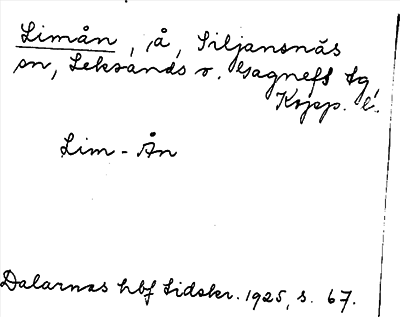 Limån, å, Siljansnäs
sn, Leksands o. Gagnefs tg,
Kopp. l.
Lim-Ån
Dalarnas hbf tidskr. 1925, s. 67.